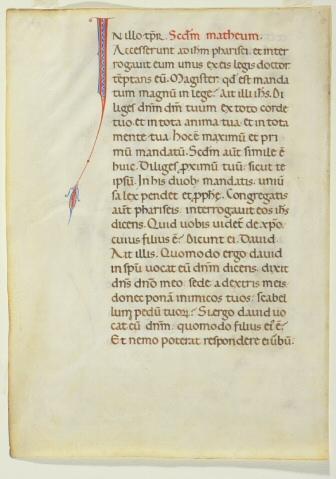 IN illo tp̄r. Scdm̄ matheum.
Accesserunt ad ih̄m pharisei. et inter
rogauit eum unus ex eis legis doctor
temptans eū. Magister qd̄ est manda
tum magnū in lege? Ait illi ih̄s. Di
liges dn̄m dm̄ tuum ex toto corde
tuo. et in tota anima tua. et in tota
mente tua. Hoc ē maximū et pri
mū mandatū. Scdm̄ aūt simile ē
huic. Diliges ꝓximum tuū. sicut te
ipsū. In his duob; mandatis. uniū
sa lex pendet et ꝓph̄e. Congregatis
aūt phariseis. interrogauit eos ih̄s
dicens. Quid uobis uidet̄ de xp̄o.
cuius filius ē? Dicunt ei. Dauid.
Ait illis. Quomodo ergo dauid
in sp̄u uocat eū dn̄m dicens. dixit
dn̄s dn̄o meo. sede a dextris meis
donec ponā inimicos tuos. scabel
lum pedū tuoꝝ? Si ergo dauid uo
cat eū dn̄m. quomodo filius ei' ē?
Et nemo poterat respondere ei ūbū.